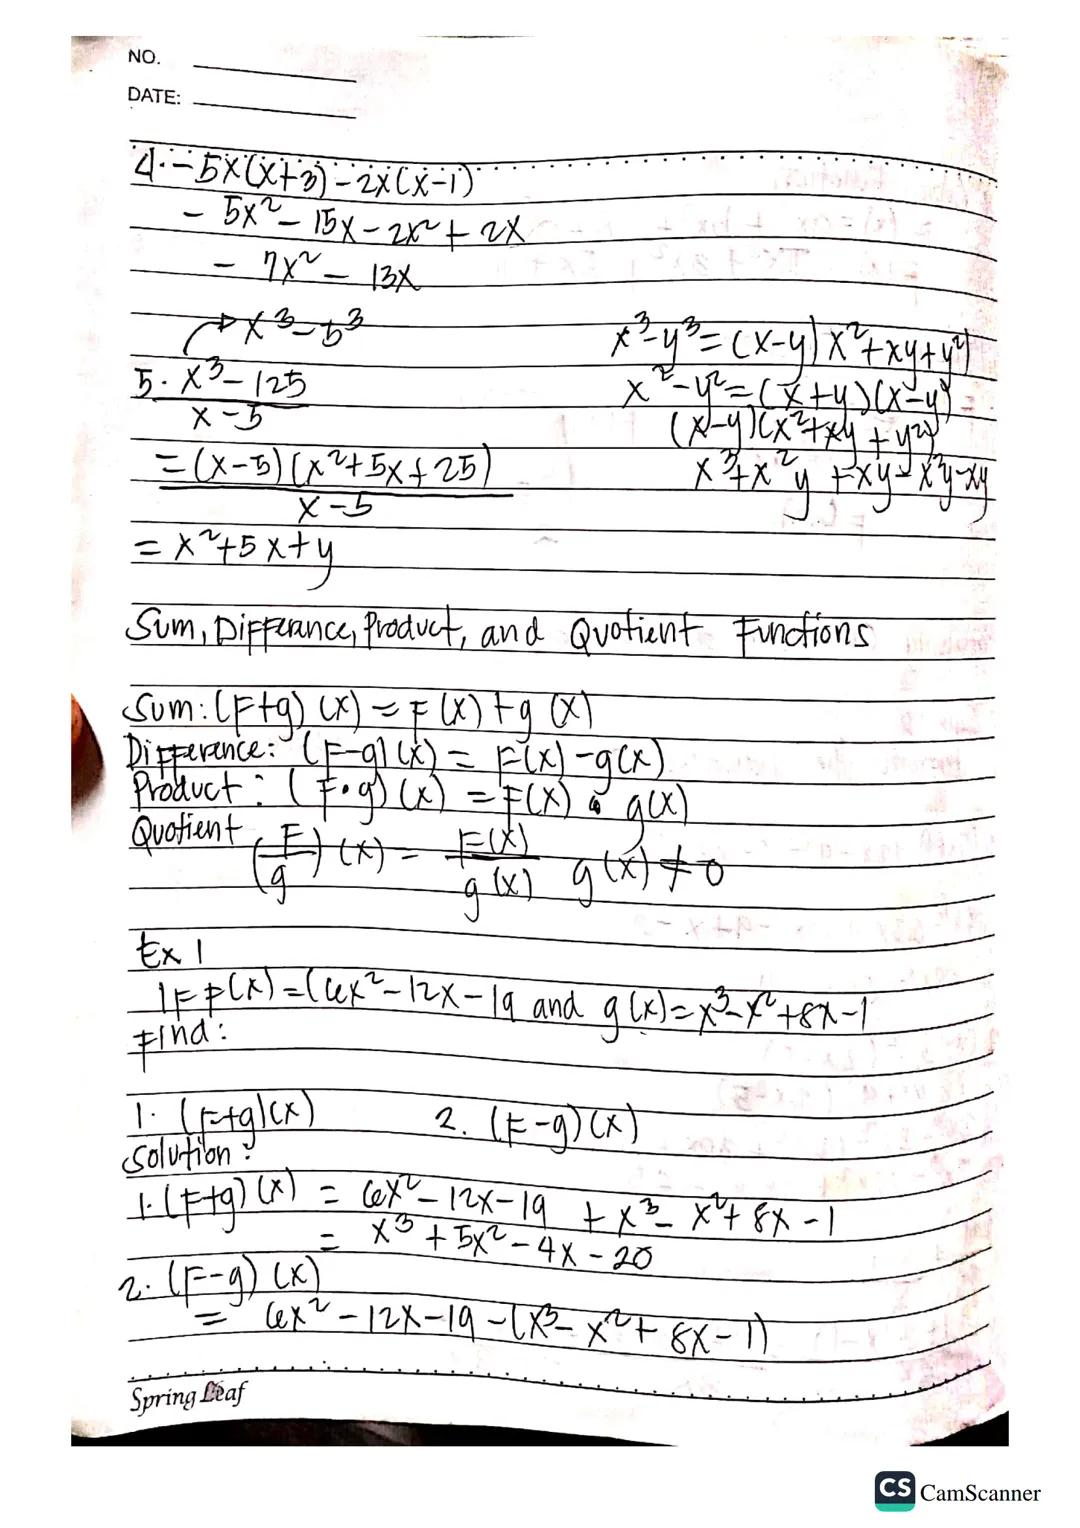 NO.
DATE:
4. -5x(x+3)-2x(x-1)
- 5x²- 15x - 2x² + 2x
- 7x² - 13x
x³-5³
5. x³-125
x-5
= (x-5)(x²+5x+25)
x-5
= x²+5x+y
x³-y³= (x-y) x²+xy+y²)
x²-y²=(x+y)(x-y)
(x-y)(x²+xy+y²)
x³+x²y+xy-x²y-xy
Sum, Differance, Product, and Quotient Functions
Sum: (F+g) (x) = F(x) +g (x)
Difference: (F-g) (x) = F(x) -g(x)
Product: (F•g) (x) = F(x) • g(x)
Quotient (F/g) (x) = F(x)/g(x) g(x) ≠ 0
Ex 1
IF F(x) =(6x²-12x-19 and g(x)=x³-x²+8x-1
Find:
1. (F+g)(x) 2. (F-g)(x)
Solution:
1. (F+g) (x) = 6x²-12x-19 + x³- x²+ 8x -1
= x³ + 5x² - 4x - 20
2. (F-g) (x)
= 6x² -12x-19 -(x³- x²+ 8x-1)
Spring Leaf
CS CamScanner